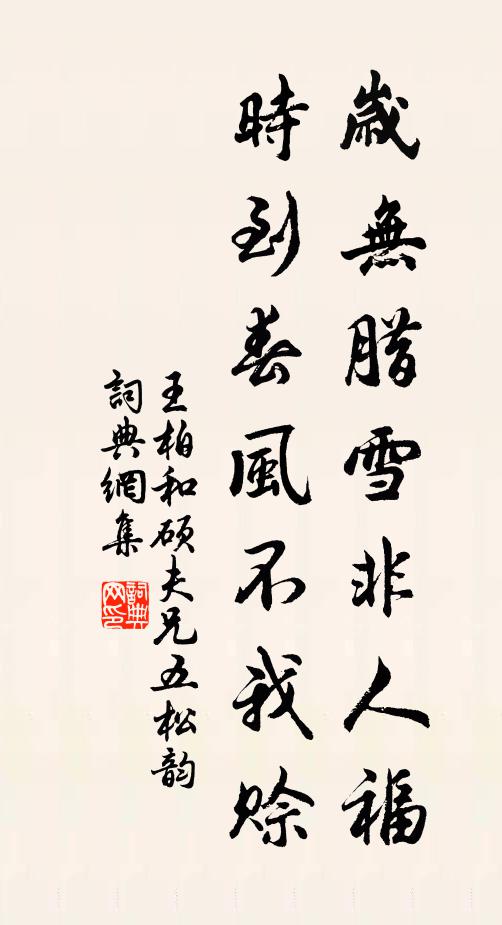 歲無腊雪非人福
時到春風不我赊
王柏和硕夫兄五松韵
詞典網集
詞典网印